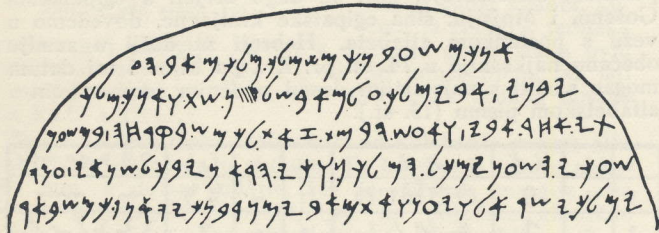 𐤀𐤍𐤊.𐤌𐤔𐤏.𐤁𐤍.𐤌𐤋𐤊.𐤌𐤀𐤁.𐤄𐤃
𐤉𐤁𐤍𐤉|𐤀𐤁𐤉.𐤌𐤋𐤊.𐤏𐤋.𐤌𐤀𐤁.𐤔𐤋𐤔𐤍.𐤔𐤕.𐤅𐤀𐤍𐤊.𐤌𐤋𐤊
𐤕𐤉.𐤀𐤇𐤓.𐤀𐤁𐤉|𐤅𐤀𐤏𐤔.𐤄𐤁𐤌𐤕.𐤆𐤀𐤕.𐤋𐤊𐤌𐤔.𐤁𐤒𐤓𐤇𐤄|
𐤔𐤏.𐤊𐤉.𐤄𐤔𐤏𐤍𐤉.𐤌𐤊𐤋.𐤄𐤌𐤋𐤊𐤍.𐤅𐤊𐤉.𐤄𐤓𐤀𐤍𐤉.𐤁𐤊𐤋.𐤔𐤍𐤀𐤉|𐤏𐤌𐤓
𐤉.𐤌𐤋𐤊.𐤉𐤔𐤓𐤀𐤋.𐤅𐤉𐤏𐤍𐤅.𐤀𐤕.𐤌𐤀𐤁.𐤉𐤌𐤍.𐤓𐤁𐤍.𐤊𐤉.𐤉𐤀𐤍𐤐.𐤊𐤌𐤔.𐤁𐤀𐤓